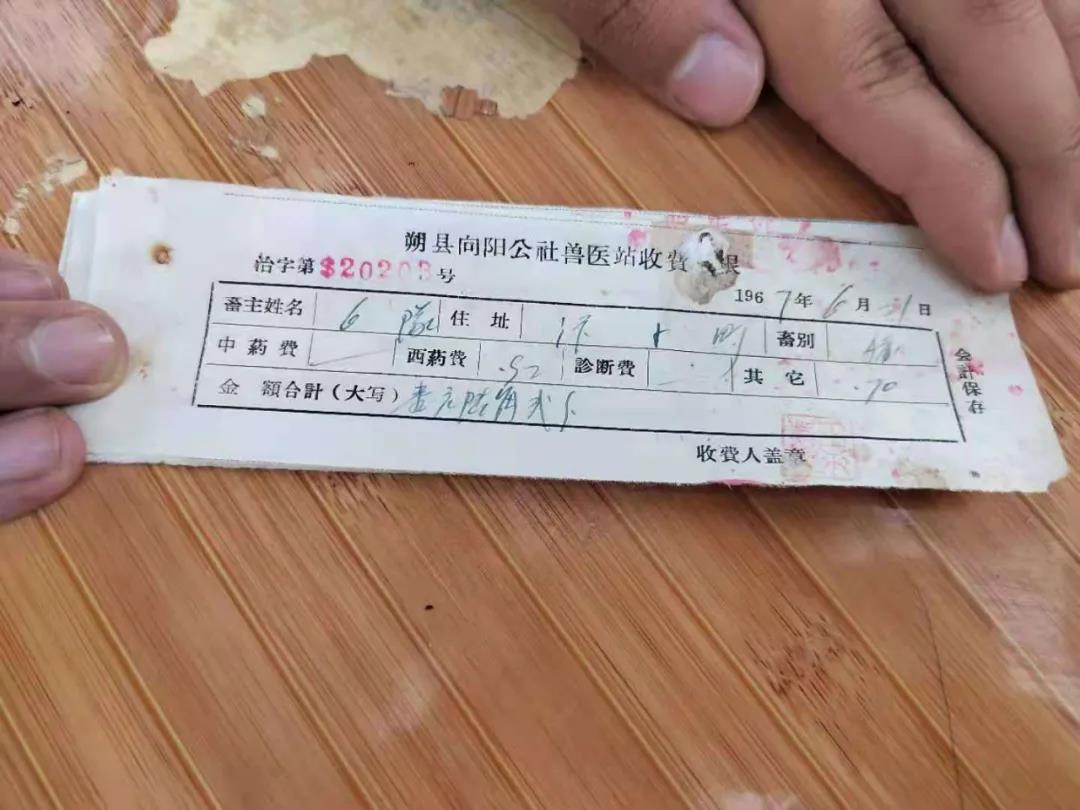 朔县向阳公社兽医站收費 根
治字第$20203号
1967年6月21日
畜主姓名 6 隊 住 址 畜别
中葯費 西葯費 .52 診断費 其 它 .70
金 額合計(大写) 壹元陆角弍分
会計保存
收費人盖章